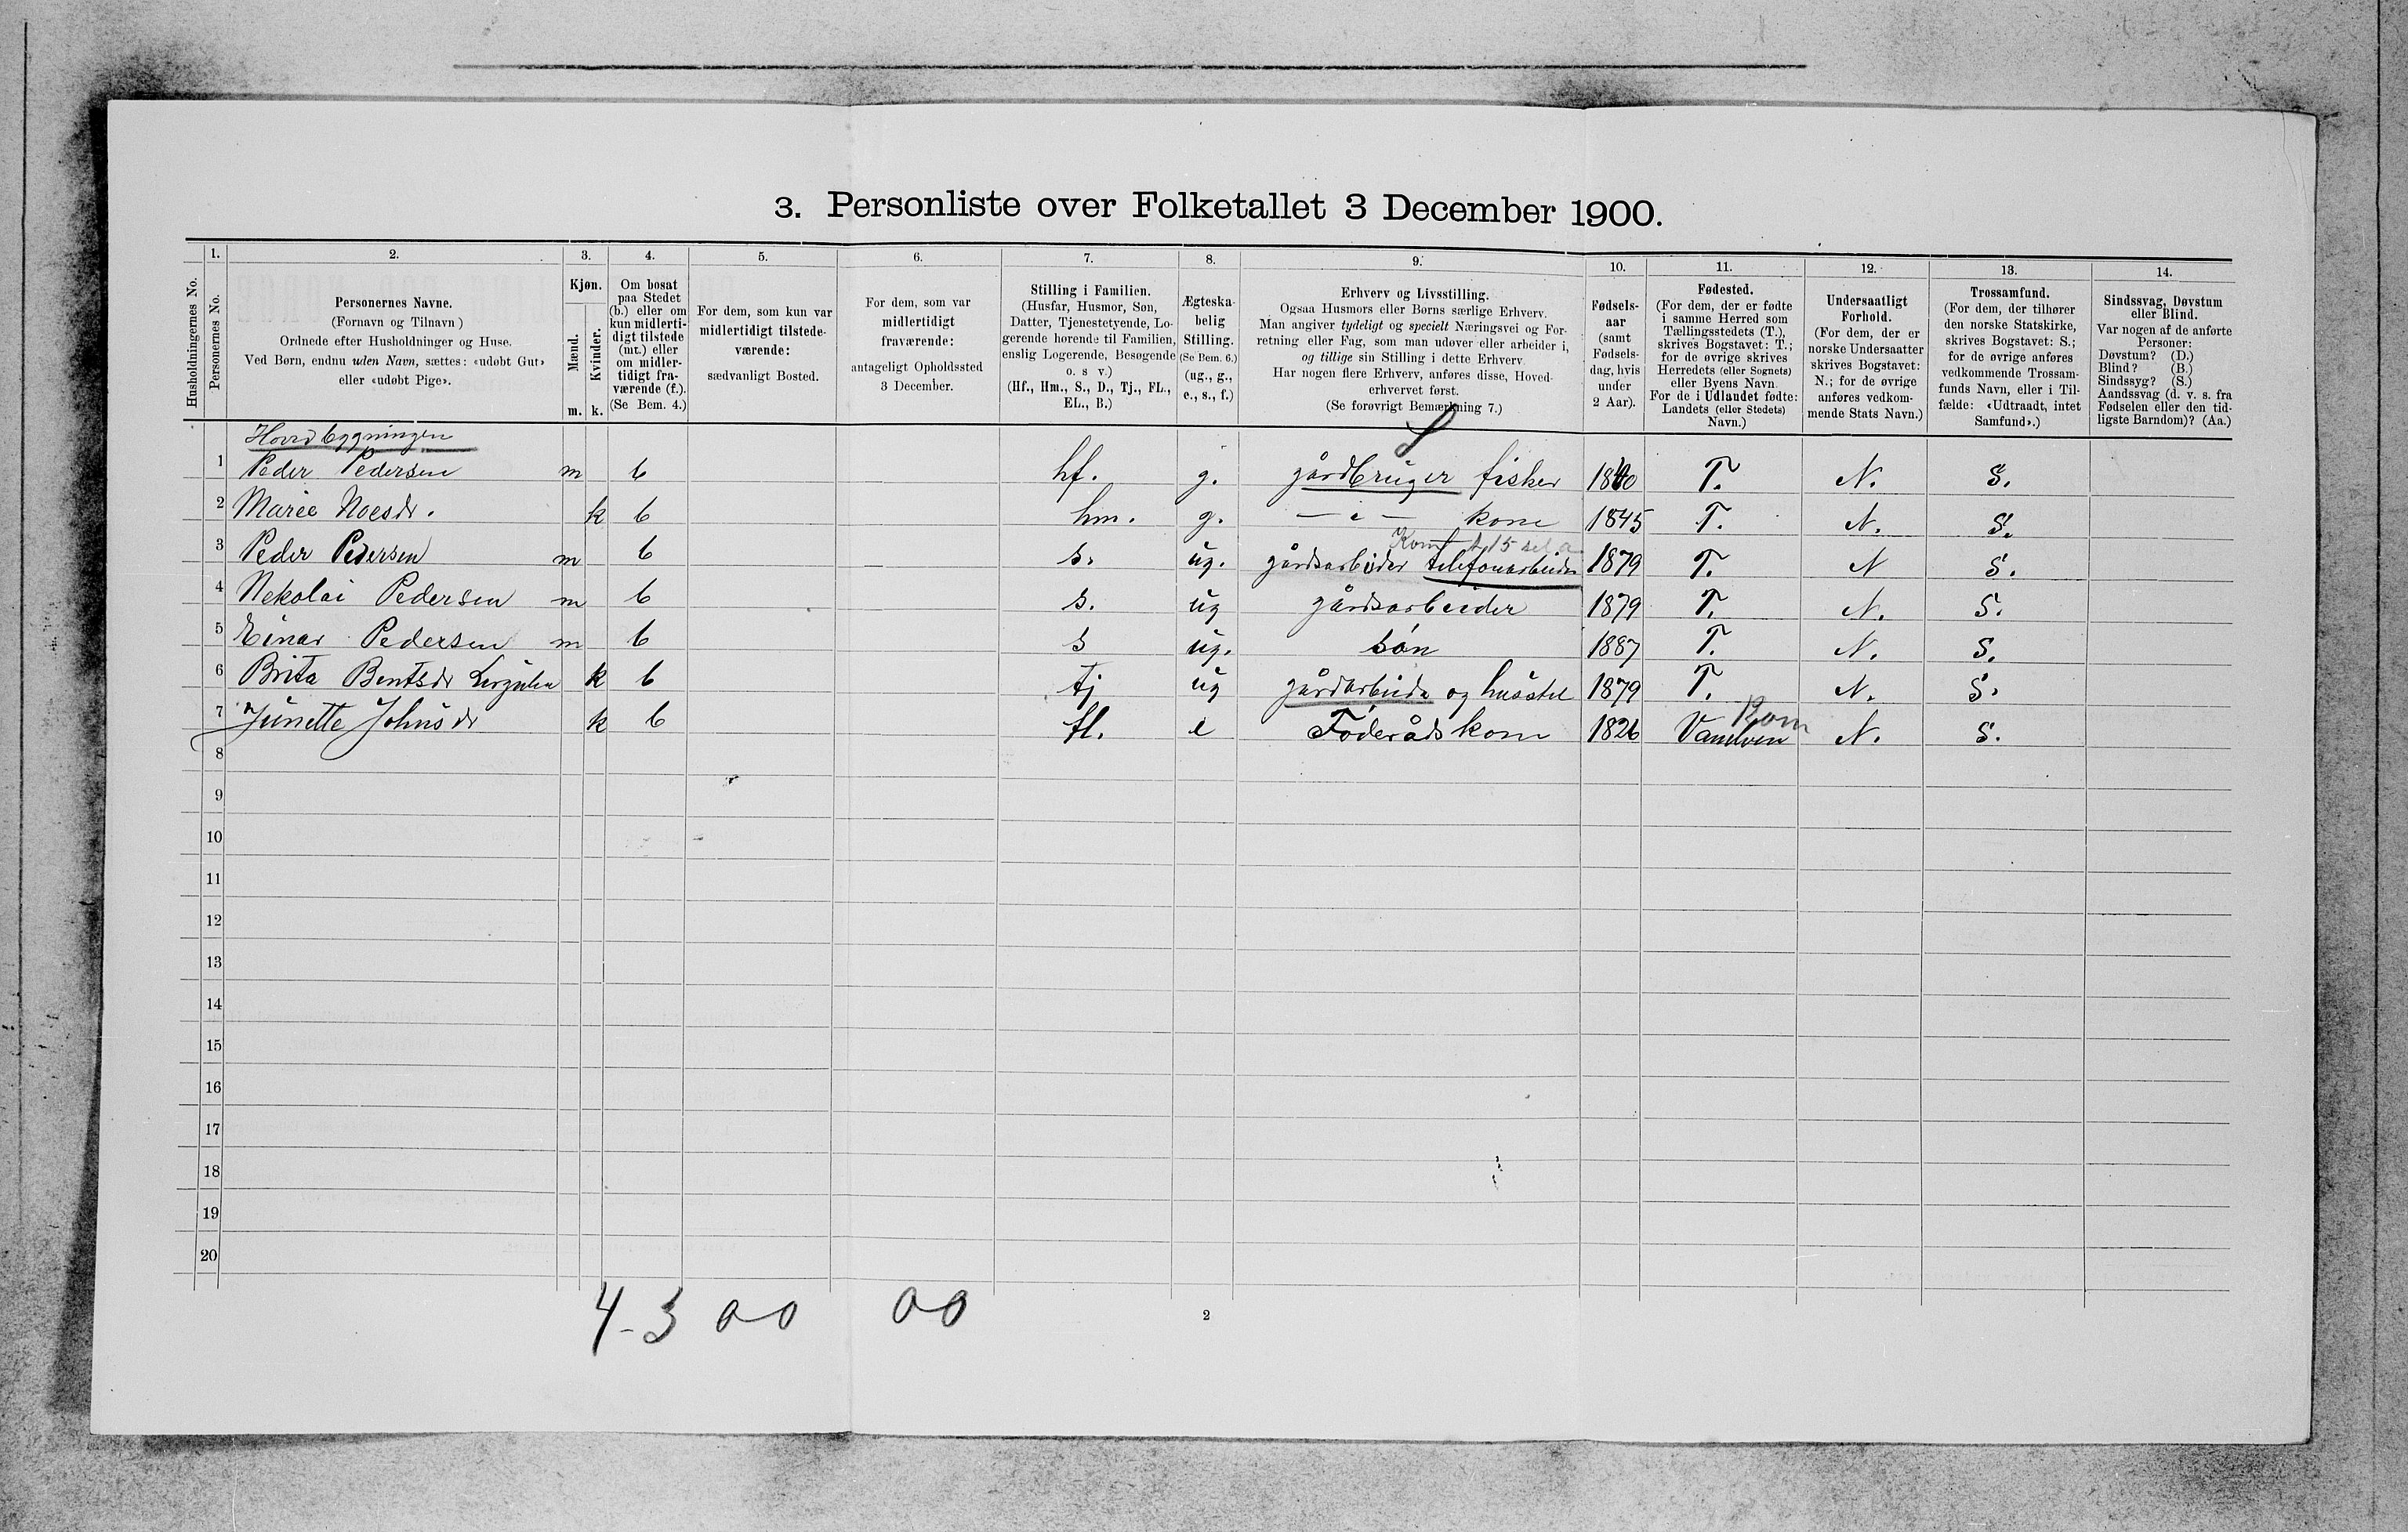 3. Personliste over Folketallet 3 December 1900.
1. 2. 3. 4. 5. 6. 7. 8. 9. 10. 11. 12. 13. 14.
Husholdningernes No.
Personernes No.
Personernes Navne.
(Fornavn og Tilnavn)
Ordnede efter Husholdninger og Huse.
Ved Børn, endnu uden Navn, sættes: «udøbt Gut»
eller «udøbt Pige».
Kjøn.
Mænd.
Kvinder.
m. k.
Om bosat
paa Stedet
(b.) eller om
kun midlerti-
digt tilstede
(mt.) eller
om midler-
tidigt fra-
værende (f.).
(Se Bem. 4.)
For dem, som kun var
midlertidigt tilstede-
værende:
sædvanligt Bosted.
For dem, som var
midlertidigt
fraværende:
antageligt Opholdssted
3 December.
Stilling i Familien.
(Husfar, Husmor, Søn,
Datter, Tjenestetyende, Lo-
gerende hørende til Familien,
enslig Logerende, Besøgende
o. s v.)
(Hf., Hm., S., D., Tj., FL.,
EL., B.)
Ægteska-
belig
Stilling.
(Se Bem. 6.)
(ug., g.,
e., s., f.)
Erhverv og Livsstilling.
Ogsaa Husmors eller Børns særlige Erhverv.
Man angiver tydeligt og specielt Næringsvei og For-
retning eller Fag, som man udøver eller arbeider i,
og tillige sin Stilling i dette Erhverv
Har nogen flere Erhverv, anføres disse, Hoved-
erhvervet først.
(Se forøvrigt Bemærkning 7.)
Fødsels-
aar
(samt
Fødsels-
dag, hvis
under
2 Aar).
Fødested.
(For dem, der er fødte
i samme Herred som
Tællingsstedets (T.),
skrives Bogstavet: T.;
for de øvrige skrives
Herredets (eller Sognets)
eller Byens Navn.
For de i Udlandet fødte:
Landets (eller Stedets)
Navn.)
Undersaatligt
Forhold.
(For dem, der er
norske Undersaatter
skrives Bogstavet:
N.; for de øvrige
anføres vedkom-
mende Stats Navn.)
Trossamfund.
(For dem, der tilhører
den norske Statskirke,
skrives Bogstavet: S.;
for de øvrige anføres
vedkommende Trossam-
funds Navn, eller i Til-
fælde: «Udtraadt, intet
Samfund».)
Sindssvag, Døvstum
eller Blind.
Var nogen af de anførte
Personer:
Døvstum? (D.)
Blind? (B.)
Sindssyg? (S.)
Aandssvag (d. v. s. fra
Fødselen eller den tid-
ligste Barndom)? (Aa.)
Hovedbygningen
1 Peder Pedersen m b hf. g. gårdbruger fisker T. N. S.
2 Marie k b hm. g. kone 1845 T. N. S.
3 Peder Pedersen m b s. ug. gårdsarbeider telefonarbeider 1879 T. N S.
4 Nekolai Pedersen m b s. ug gårdsarbeider 1879 T. N. S.
5 Einar Pedersen m b s ug. søn 1887 T. N. S.
6 Brita Bentsdr k b tj ug gårdarbeide og husstel 1879 T. N. S.
7 Jünette Johnsdr k b fl. e Føderådskone 1826 Vanelven N. S.
8
9
10
11
12
13
14
15
16
17
18
19
20
4-3 00 00
2